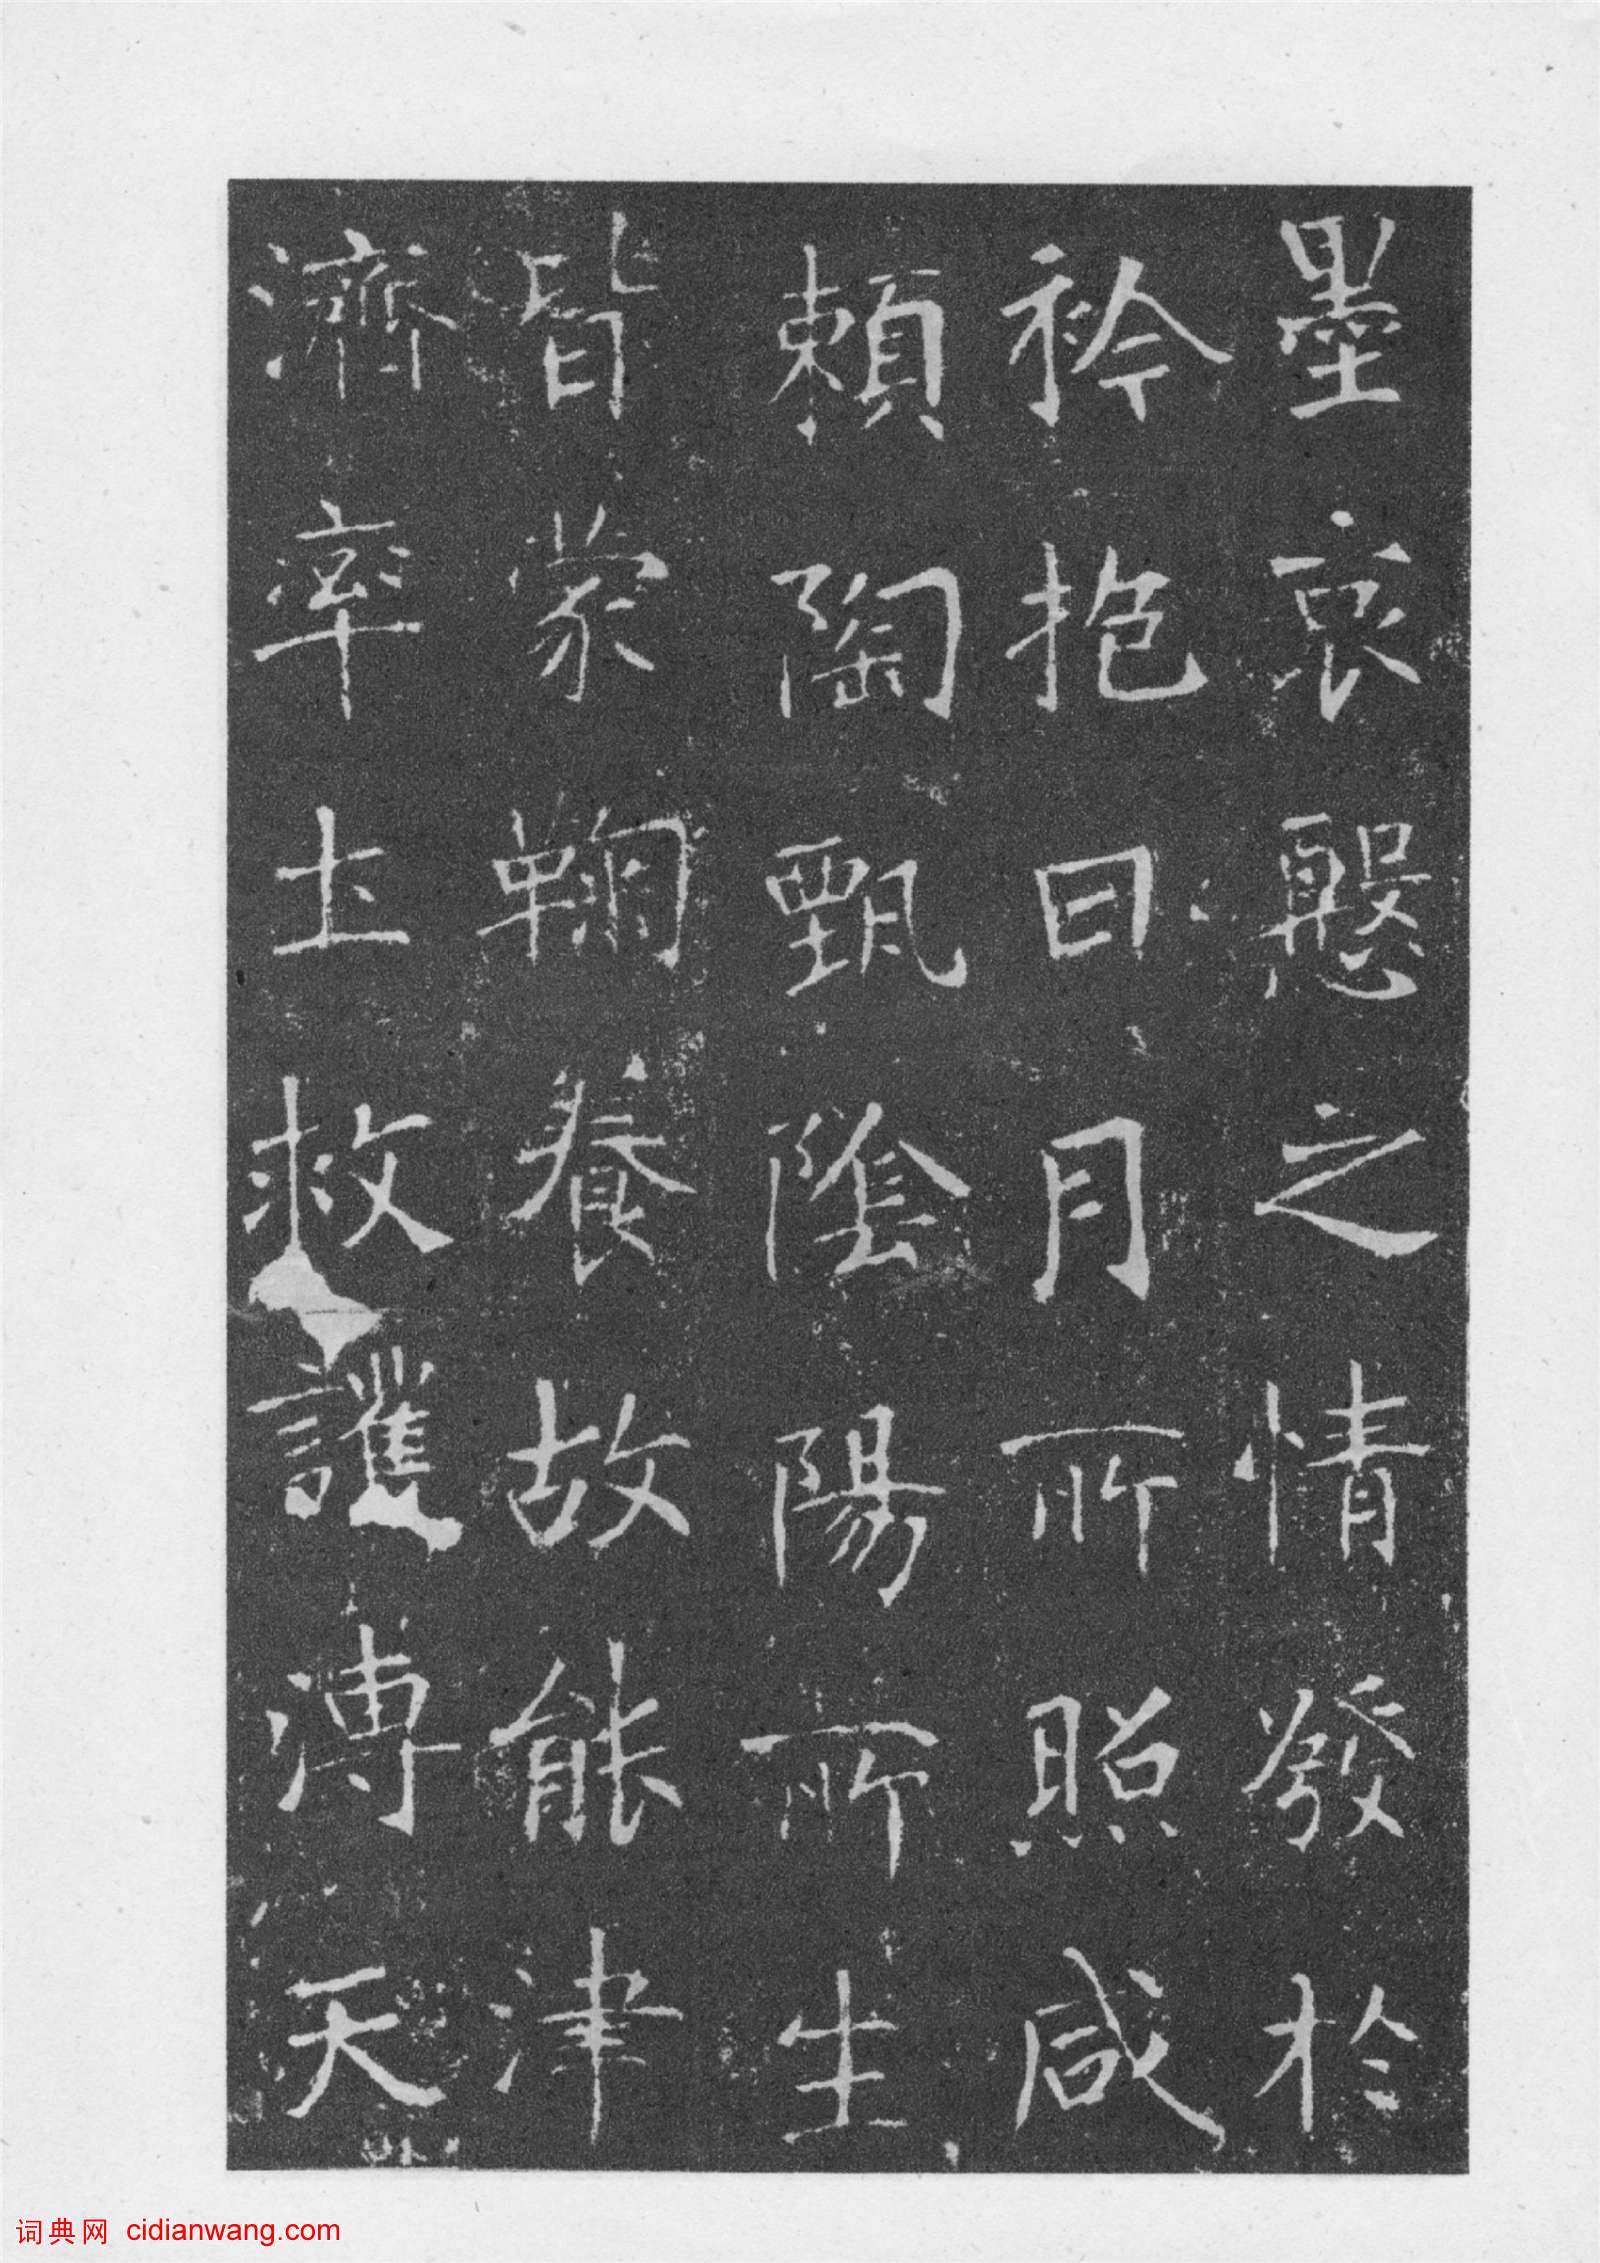 墨哀慇之情發於
衿抱日月所照咸
賴陶甄陰陽所生
皆蒙鞠養故能津
濟率土救護溥天
词典网 cidianwang.com